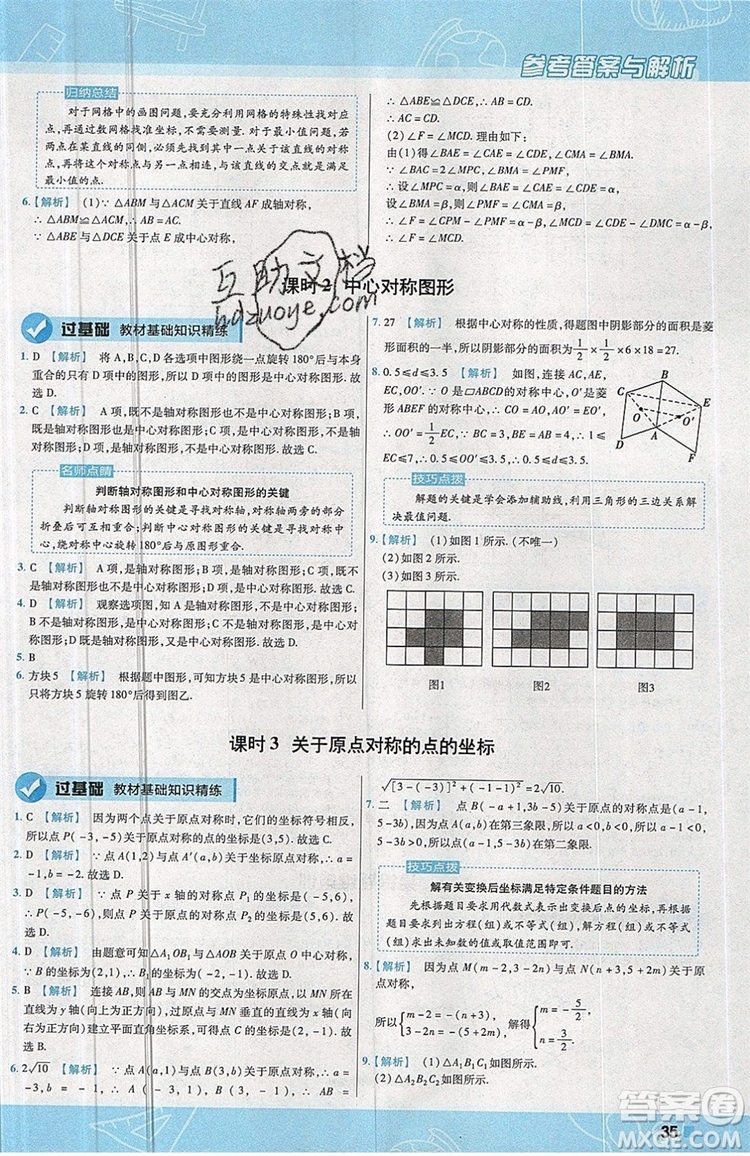 参考答案与解析
归纳总结
对于网格中的画图问题，要充分利用网格的特殊性找对应
点，再通过数网格就准坐标，不需要测量. 对于最小值问题，若
在某直线的同侧，必须先找到其中一点关于该直线的对称
点，再将这个对称点与另一点相连，与该直线的交点就是满足
题干最小值的点.
6.【解析】 (1)∵△ABM 与△ACM 关于直线 AF 成轴对称，
∴△ABM≌△ACM，∴AB=AC.
又∵△ABE 与△DCE 关于点 E 成中心对称，
∴△ABE≌△DCE，∴AB=CD，
∴AC=CD.
(2)∠F=∠MCD. 理由如下：
由(1)可得∠BAE=∠CAE=∠CDE，∠CMA=∠BMA.
∵∠BAC=2∠MPC，∠BMA=∠PMF，
∴设∠MPC=α，则∠BAE=∠CAE=∠CDE=α.
设∠BMA=β，则∠PMF=∠CMA=β，
∴∠F=∠CPM-∠PMF=α-β，∠MCD=∠CDE-∠DMC=α-β，
∴∠F=∠MCD.
互助文档
hdzuoye.com
课时2 中心对称图形
过基础 教材基础知识精练
1. D 【解析】 将 A,B,C,D 各选项中图形绕一点旋转 180°后与本身
重合的只有 D 项中的图形，所以 D 项中的图形是中心对称图形. 故
选 D.
2. C 【解析】 A 项，既不是轴对称图形也不是中心对称图形；B 项，
不是轴对称图形，是中心对称图形；C 项，既是轴对称图形又是中心
对称图形；D 项，是轴对称图形，不是中心对称图形. 故选 C.
名师点睛
判断轴对称图形和中心对称图形的关键
判断轴对称图形的关键是寻找对称轴，对称轴两旁的部分
折叠后可互相重合；判断中心对称图形的关键是寻找对称中
心，绕对称中心旋转 180°后与原图形重合.
3. C 【解析】 A 项，是轴对称图形，不是中心对称图形；B 项，是轴对
称图形也是中心对称图形；C 项，不是轴对称图形，是中心对称图
形；D 项，是轴对称图形，不是中心对称图形. 故选 C.
4. D 【解析】 观察选项图形，B 既不是轴对称图形，也不是中心对称
图形；A 是轴对称图形，但不是中心对称图形；C 不是轴对称图形，
是中心对称图形；D 既是轴对称图形，又是中心对称图形. 故选 D.
5. B
6. 方块 5 【解析】 根据题中图形，可知方块 5 旋转 180°后与原图一样，
则只将方块 5 旋转 180°后得到图乙.
7. 27 【解析】 根据中心对称的性质，得题图中阴影部分的面积是菱
形面积的一半，所以阴影部分的面积为 1/2 × 1/2 × 6 × 18 = 27.
8. 0.5≤d≤3.5 【解析】 如图，连接 AC,AE,
EC,OO′. ∵O 是□ABCD 的对称中心，O′是菱
形 ABEF 的对称中心，∴CO=AO,AO′=EO′，
∴OO′=1/2 EC. ∵AC=4,AE=3，∴1≤EC
≤7，∴0.5≤OO′≤3.5，即 0.5≤d≤3.5.
C E O O′ A
技巧点拨
解题的关键是学会添加辅助线，利用三角形的三边关系解
决最值问题.
9.【解析】 (1)如图 1 所示. (不唯一)
(2)如图 2 所示.
(3)如图 3 所示.
图1 图2 图3
课时3 关于原点对称的点的坐标
过基础 教材基础知识精练
1. C 【解析】 因为两个点关于原点对称时，它们的坐标符号相反，
所以点 P(-3,-5)关于原点对称的点的坐标是(3,5). 故选 C.
2. D 【解析】 ∵点 A′(a,b)与点 A(5,1)关于坐标原点对称，∴
a=-5,b=-1. 故选 D.
3. D 【解析】 ∵点 P 关于 x 轴的对称点 P₁ 的坐标是(-5,6)，∴点
P 的坐标是(-5,-6)，∴点 P 关于原点的对称点 P₂ 的坐标是(5,
6). 故选 D.
4. D 【解析】 由题意可知△A₁OB₁ 与△AOB 关于原点 O 中心对称，
∵B 的坐标为(-2,0)，∴点 B₁ 的坐标为(2,0). 故选 D.
5. B 【解析】 连接 AB,与 MN 的交点为坐标原点，以 MN 所在的
直线为 y 轴(向上为正方向)，过原点与 MN 垂直的直线为 x 轴(向
右为正方向)建立平面直角坐标系，可得点 C 的坐标为(2,-1). 故
选 B.
6. 2√10 【解析】 ∵点 A(a,1)与点 B(3,b)关于原点对称，∴a=
-3,b=-1，∴点 A(-3,1)，点 B(3,-1)，∴AB=
√[3-(-3)]²+(-1-1)²=2√10.
7. 二 【解析】 点 B(-a+1,3b-5)关于原点的对称点是(a-1,
5-3b). ∵点 A(a,b)在第三象限，所以 a<0,b<0，所以 a-1<0，
5-3b>0，所以点(a-1,5-3b)在第二象限.
技巧点拨
解有关变换后坐标满足特定条件题目的方法
先根据题目要求用代数式表示变换后点的坐标，再根据题
目要求列出方程(组)或不等式(组)，通过解方程(组)或不等
式(组)求出待定字母的值或取值范围.
8.【解析】 因为点 M(m-2,3-2n)与点 N(n+3,m)关于原点对称，
所以{m-2=-n-3, 3-2n=-m, 解得{m=-5/2, n=3/2...
9.【解析】 (1)△A₁B₁C₁ 如图所示.
(2)△A₂B₂C₂ 如图所示.
35
答案圈
MXQE.COM